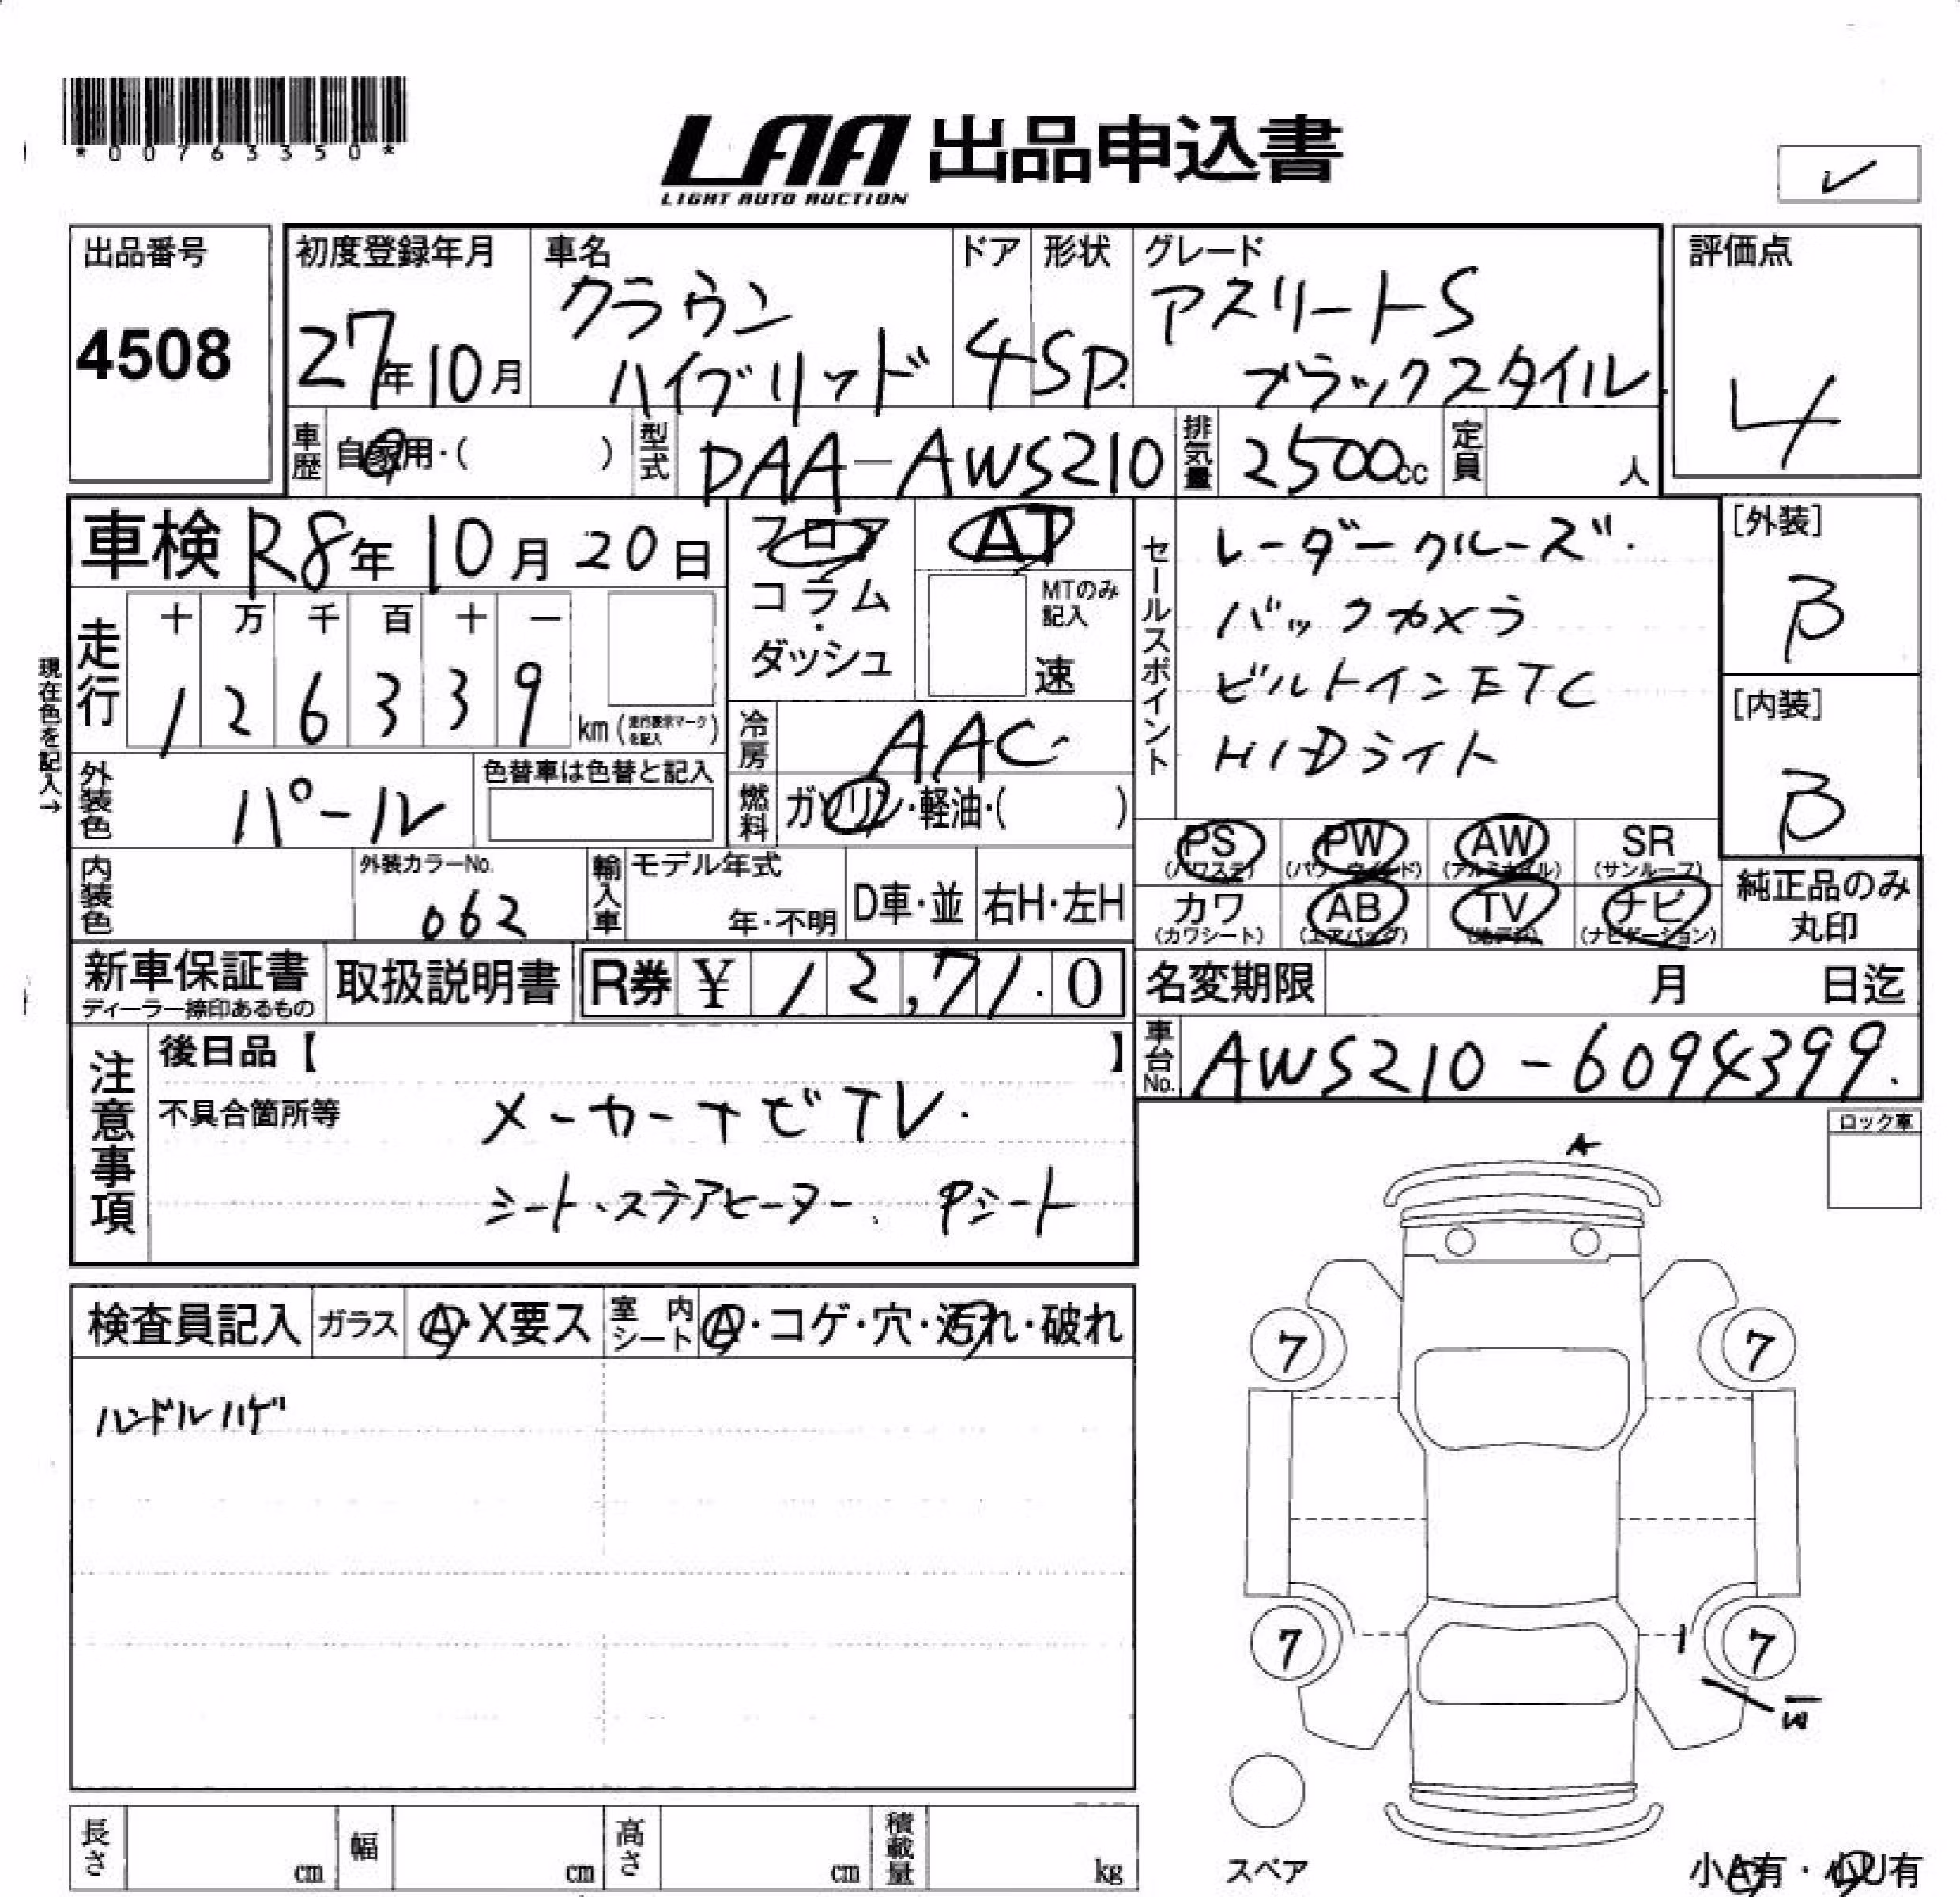 *00763350*
LAA 出品申込書
LIGHT AUTO AUCTION
レ
出品番号
4508
初度登録年月
27年10月
車名
クラウン
ハイブリッド
ドア
4
形状
SD.
グレード
アスリートS
ブラックスタイル
評価点
4
車歴
自家用・( )
型式
DAA-AWS210
排気量
2500cc
定員
人
車検 R8年 10月 20日
フロア
コラム
・
ダッシュ
AT
MTのみ
記入
速
セールスポイント
レーダークルーズ.
バックカメラ
ビルトインETC
HIDライト
[外装]
B
[内装]
B
現在色を記入→
走行
十 万 千 百 十 一
1 2 6 3 3 9
km(走行表示マークを記入)
冷房
AAC
外装色
パール
色替車は色替と記入
燃料
ガソリン・軽油・( )
PS PW AW SR
(パワステ) (パワーウインド) (アルミホイル) (サンルーフ)
カワ AB TV ナビ
(カワシート) (エアバッグ) (地デジ) (ナビゲーション)
純正品のみ
丸印
内装色
外装カラーNo.
062
輸入車
モデル年式
年・不明
D車・並
右H・左H
新車保証書
ディーラー捺印あるもの
取扱説明書
R券 ¥ 12,71.0
名変期限 月 日迄
車台No.
AWS210-6094399.
注意事項
後日品【 】
不具合箇所等
メーカーナビTV.
シート・ステアヒーター. Pシート
ロック車
A
検査員記入
ガラス
A・X要ス
室内シート
A・コゲ・穴・汚れ・破れ
ハンドルハゲ
7
7
7
7
W
スペア
小A有・小U有
長さ cm
幅 cm
高さ cm
積載量 kg